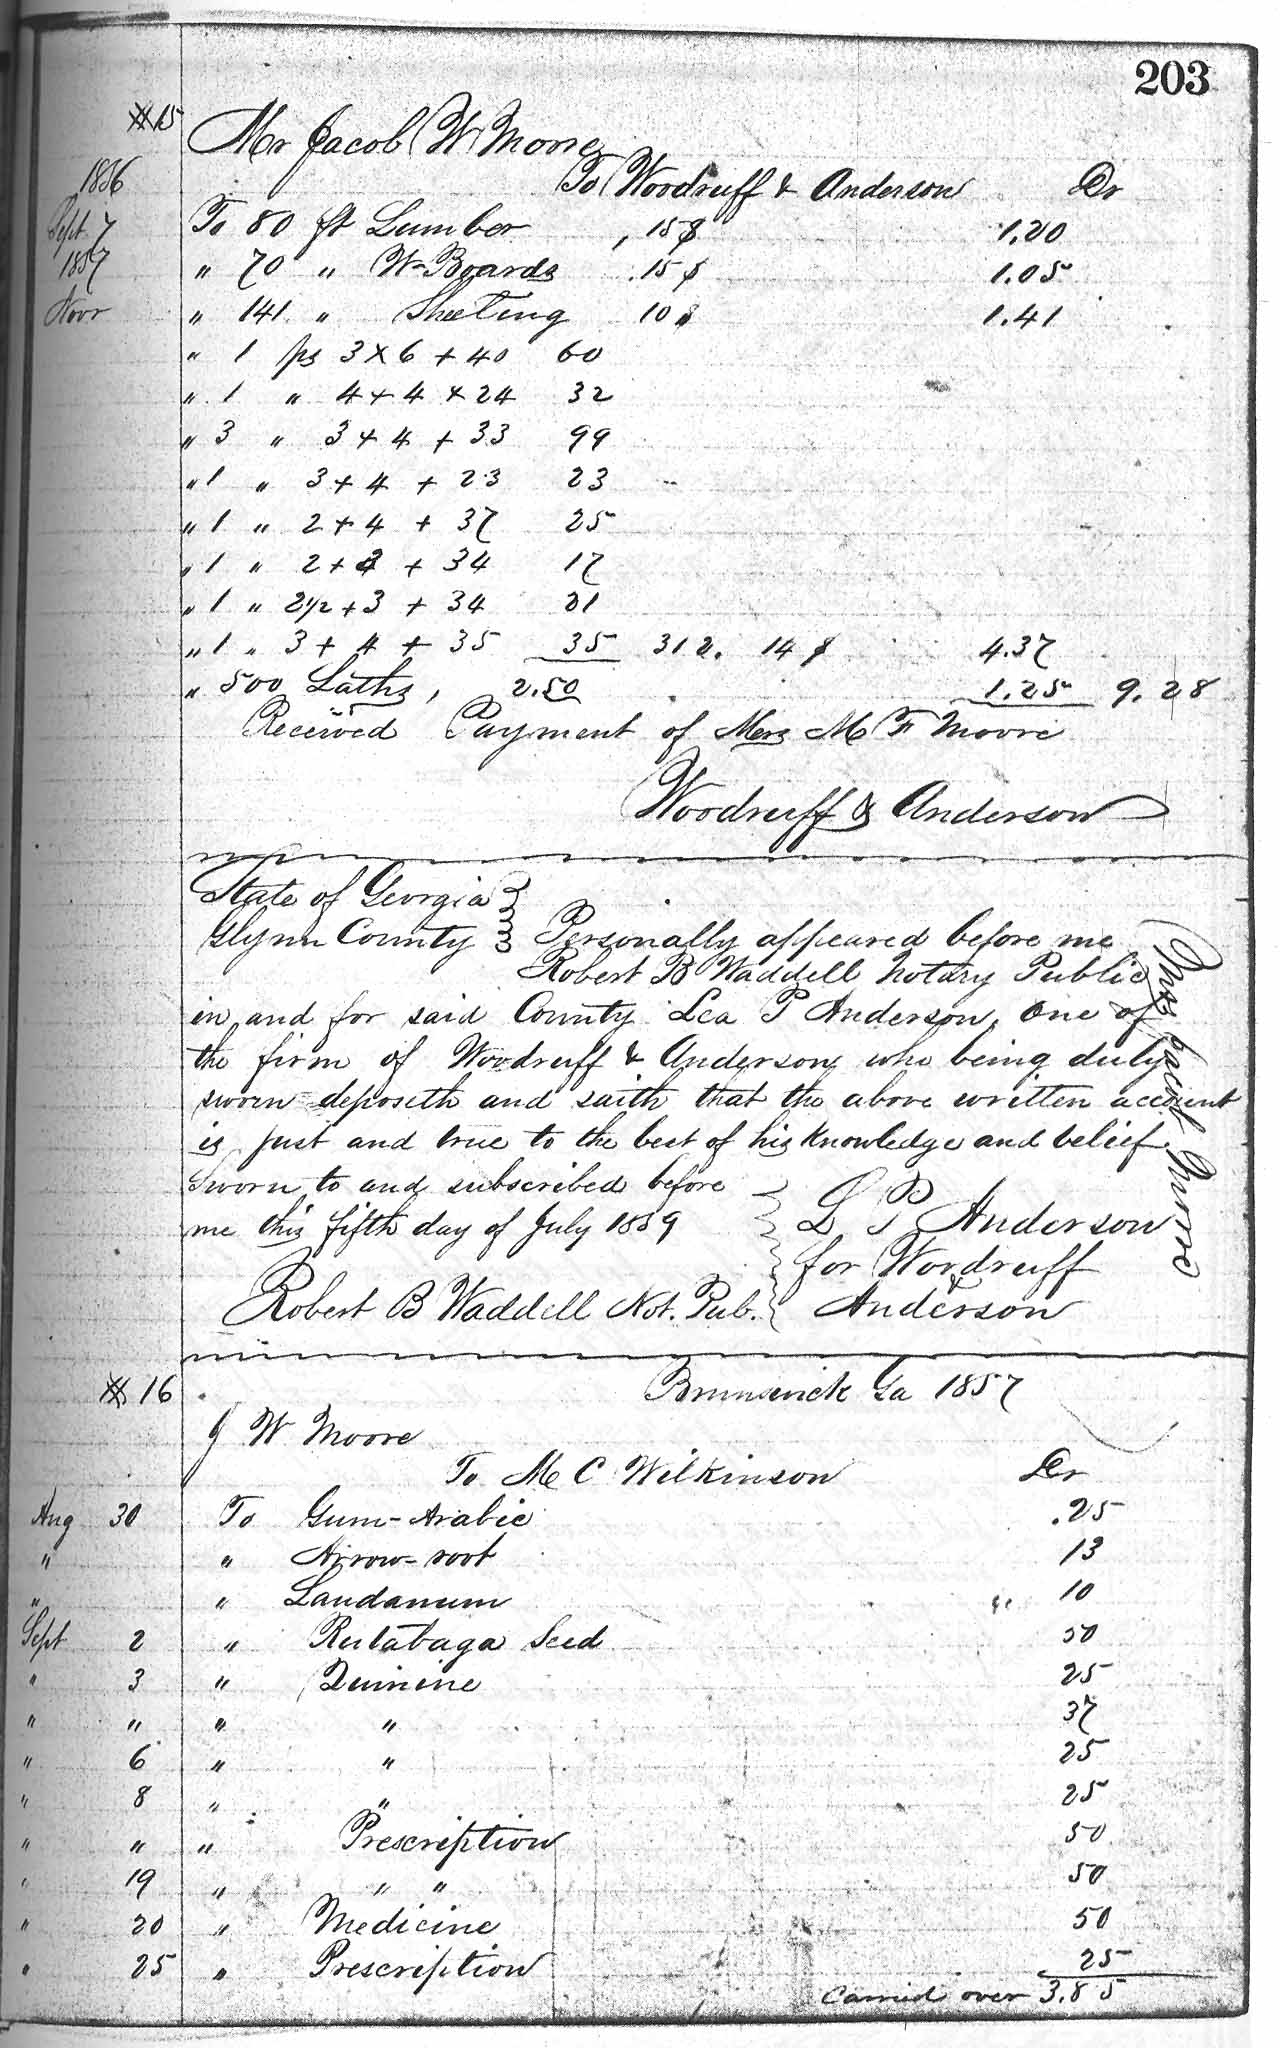 203
# 15
Mr Jacob W Moore
1856 To Woodruff & Anderson Dr
Sept 7 To 80 ft Lumber , 15$ 1.20
1857 " 70 " W-Boards .15$ 1.05
Novr " 141 " Sheeting 10$ 1.41
" 1 ps 3 x 6 + 40 60
" 1 " 4 + 4 x 24 32
" 3 " 3 + 4 + 33 99
" 1 " 3 + 4 + 23 23
" 1 " 2 + 4 + 37 25
" 1 " 2 + 3 + 34 17
" 1 " 2 1/2 + 3 + 34 21
" 1 " 3 + 4 + 35 35 312. 14 $ 4.37
" 500 Laths, 2.50 1.25 9.28
Received Payment of Mrs M F Moore
Woodruff & Anderson
State of Georgia
Glynn County Personally appeared before me
Robert B Waddell Notary Public
in and for said County Lea P Anderson, one of
the firm of Woodruff & Anderson who being duly
sworn deposeth and saith that the above written account
is just and true to the best of his knowledge and belief
Sworn to and subscribed before
me this fifth day of July 1859
L P Anderson
for Woodruff
&
Anderson
Robert B Waddell Not. Pub.
Jacob Moore
# 16 Brunswick Ga 1857
J W Moore
To M C Wilkinson Dr
Aug 30 To Gum-Arabic .25
" " Arrow-root 13
" " Laudanum " 10
Sept 2 " Rutabaga Seed 50
" 3 " Quinine 25
" " " " 37
" 6 " " 25
" 8 " " 25
" " " Prescription 50
" 19 " " " 50
" 20 " Medicine 50
" 25 " Prescription 25
Carried over 3.85